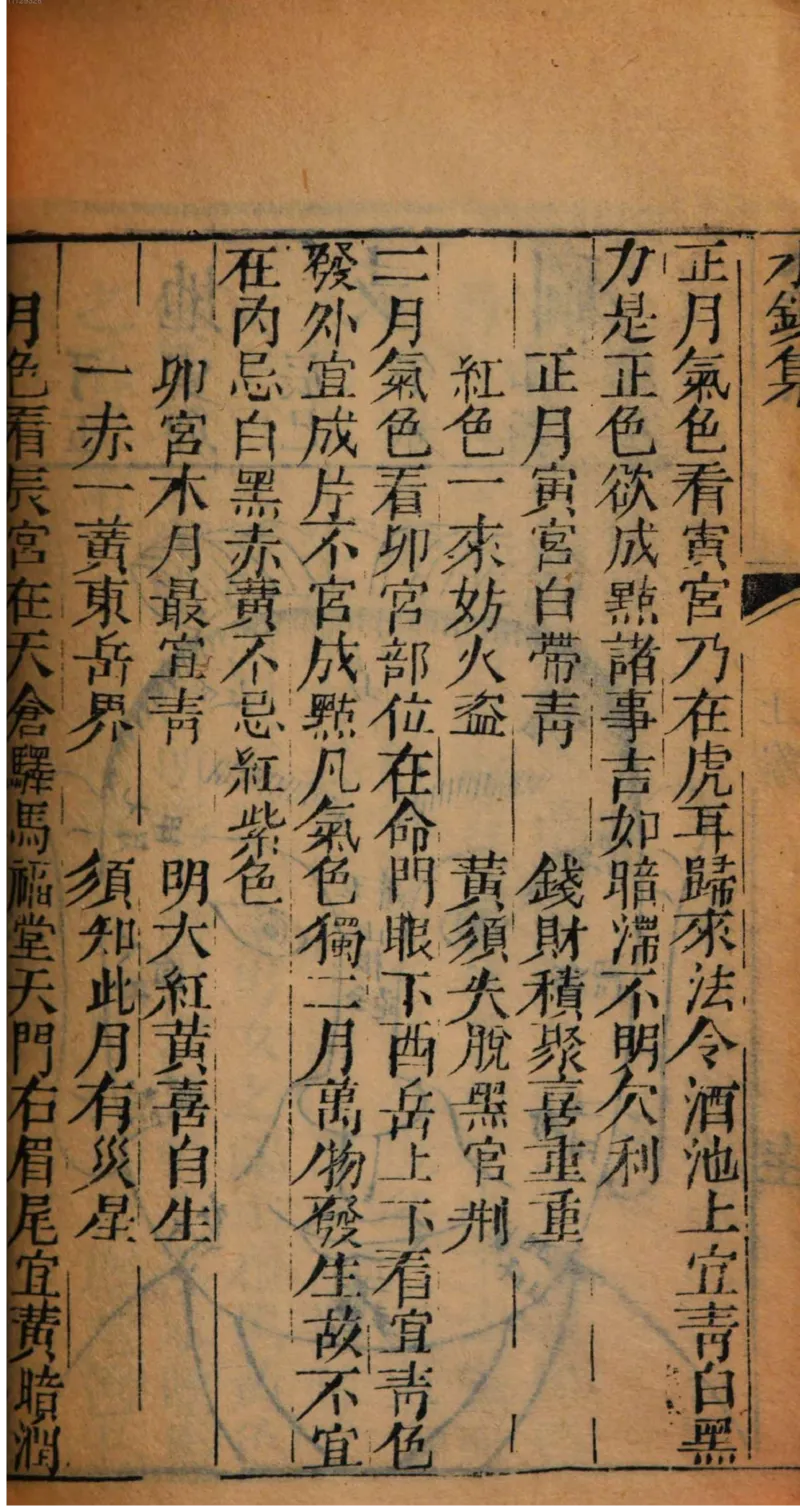 集
正月氣色看寅宮乃在虎耳歸來法令酒池上宜靑白黑
力是正色欲成㸃諸事吉如暗滯不明欠利
正月寅宮白帶靑　錢財積聚喜重重
紅色一來妨火盜　黃須失脫黑官刑
二月氣色看卯宮部位在命門眼下酉岳上下看宜靑色
發外宜成片不宮成㸃凡氣色獨二月萬物發生故不宜
在內忌白黑赤黃不忌紅紫色
卯宮木月最宜靑　明大紅黃喜自生
一赤一黃東岳界　須知此月有災星
月色看辰宮在天倉驛馬福堂天門右眉尾宜黃暗潤